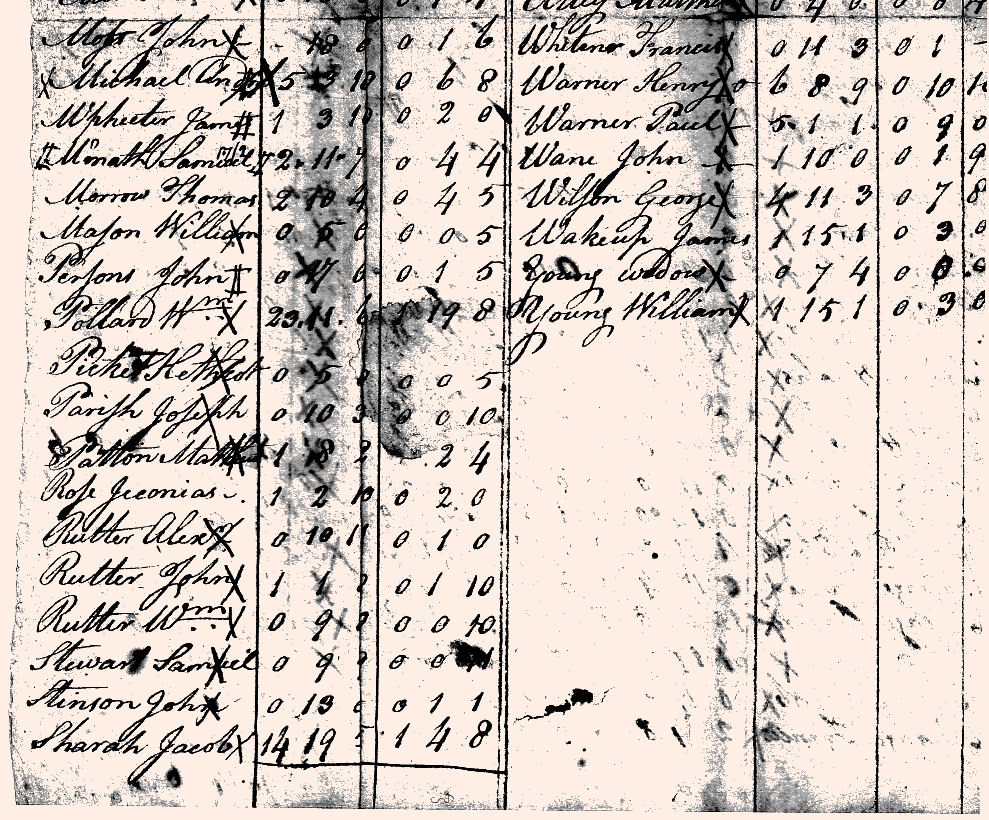 Moss John X 18 0 0 1 6
X Michael 5 3 10 0 6 8
Mpheeter Jam# 1 3 10 0 2 0
Samuel 2 11 7 0 4 4
Morrow Thomas 2 10 4 0 4 5
Mason William 0 5 0 0 0 5
Persons John # 0 17 0 0 1 5
Pollard Wm X 23 11 6 1 19 8
Picket 0 5 0 0 5
Parish Joseph 0 10 3 0 0 10
Patton 1 18 2 2 4
Rose Jeconias 1 2 10 0 2 0
Rutter Alexr X 0 10 11 0 1 0
Rutter John X 1 1 0 1 10
Rutter Wm X 0 9 0 0 10
Stewart Samuel 0 9 0 0
Stinson John X 0 13 0 0 1 1
Sharah Jacob X 14 19 1 4 8
Francis X 0 11 3 0 1
Warner Henry X 6 8 9 0 10
Warner Paul X 5 1 1 0 9 0
Wane John X 1 10 0 0 1 9
Wilson George X 4 11 3 0 7 8
Wakeup James 1 15 1 0 3 0
Young widow X 0 7 4 0
Young William X 1 15 1 0 3 0